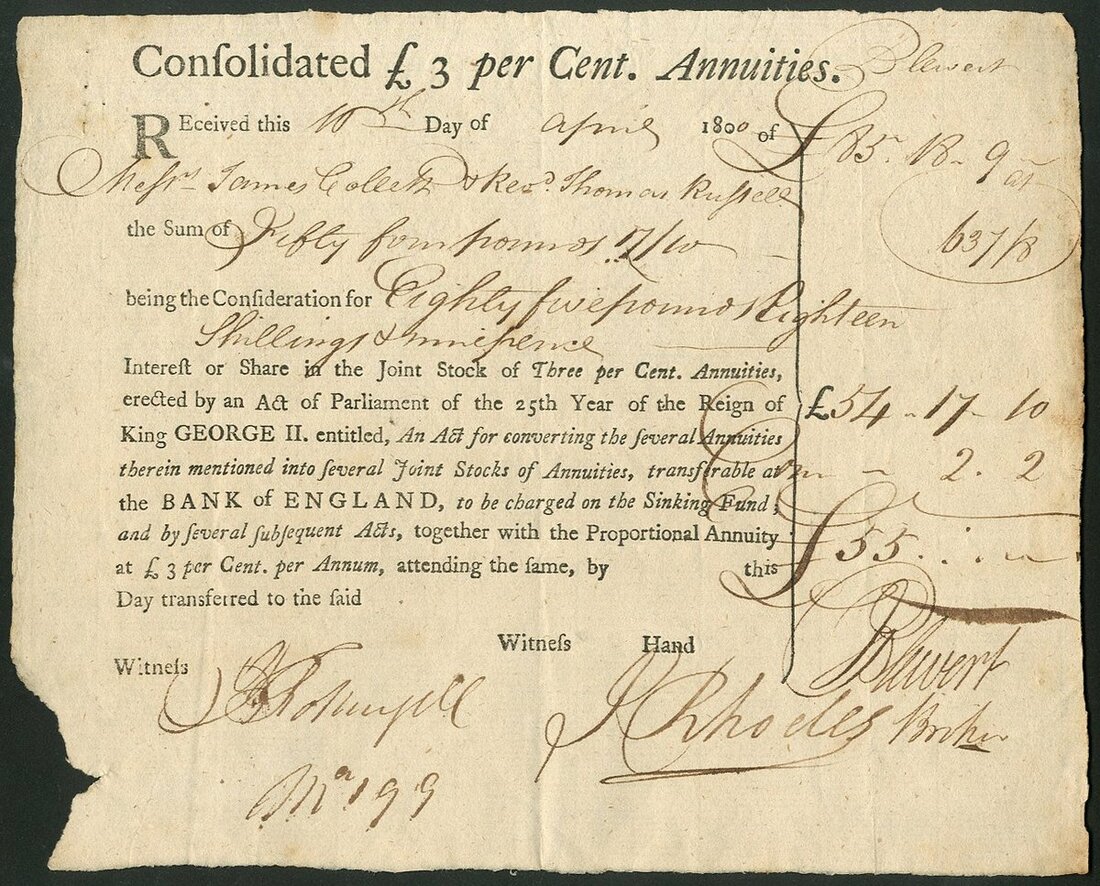 Conſolidated £ 3 per Cent. Annuities. Blewert
REceived this 10th Day of April 1800 of £85 18 9 at
Meſsrs James Collett & Revd. Thomas Ruſsell
63 7/8
the Sum of Fifty four pounds 17/10
being the Conſideration for Eighty five pounds Eighteen
Shillings & ninepence
Intereſt or Share in the Joint Stock of Three per Cent. Annuities,
erected by an Act of Parliament of the 25th Year of the Reign of £54 - 17 - 10
King GEORGE II. entitled, An Act for converting the ſeveral Annuities
therein mentioned into ſeveral Joint Stocks of Annuities, transferable at 2. 2
the BANK of ENGLAND, to be charged on the Sinking Fund;
and by ſeveral ſubſequent Acts, together with the Proportional Annuity £55. . .
at £ 3 per Cent. per Annum, attending the ſame, by this
Day transferred to the ſaid
Witneſs Hand Blewert
Witneſs J Rhodes Broker
199